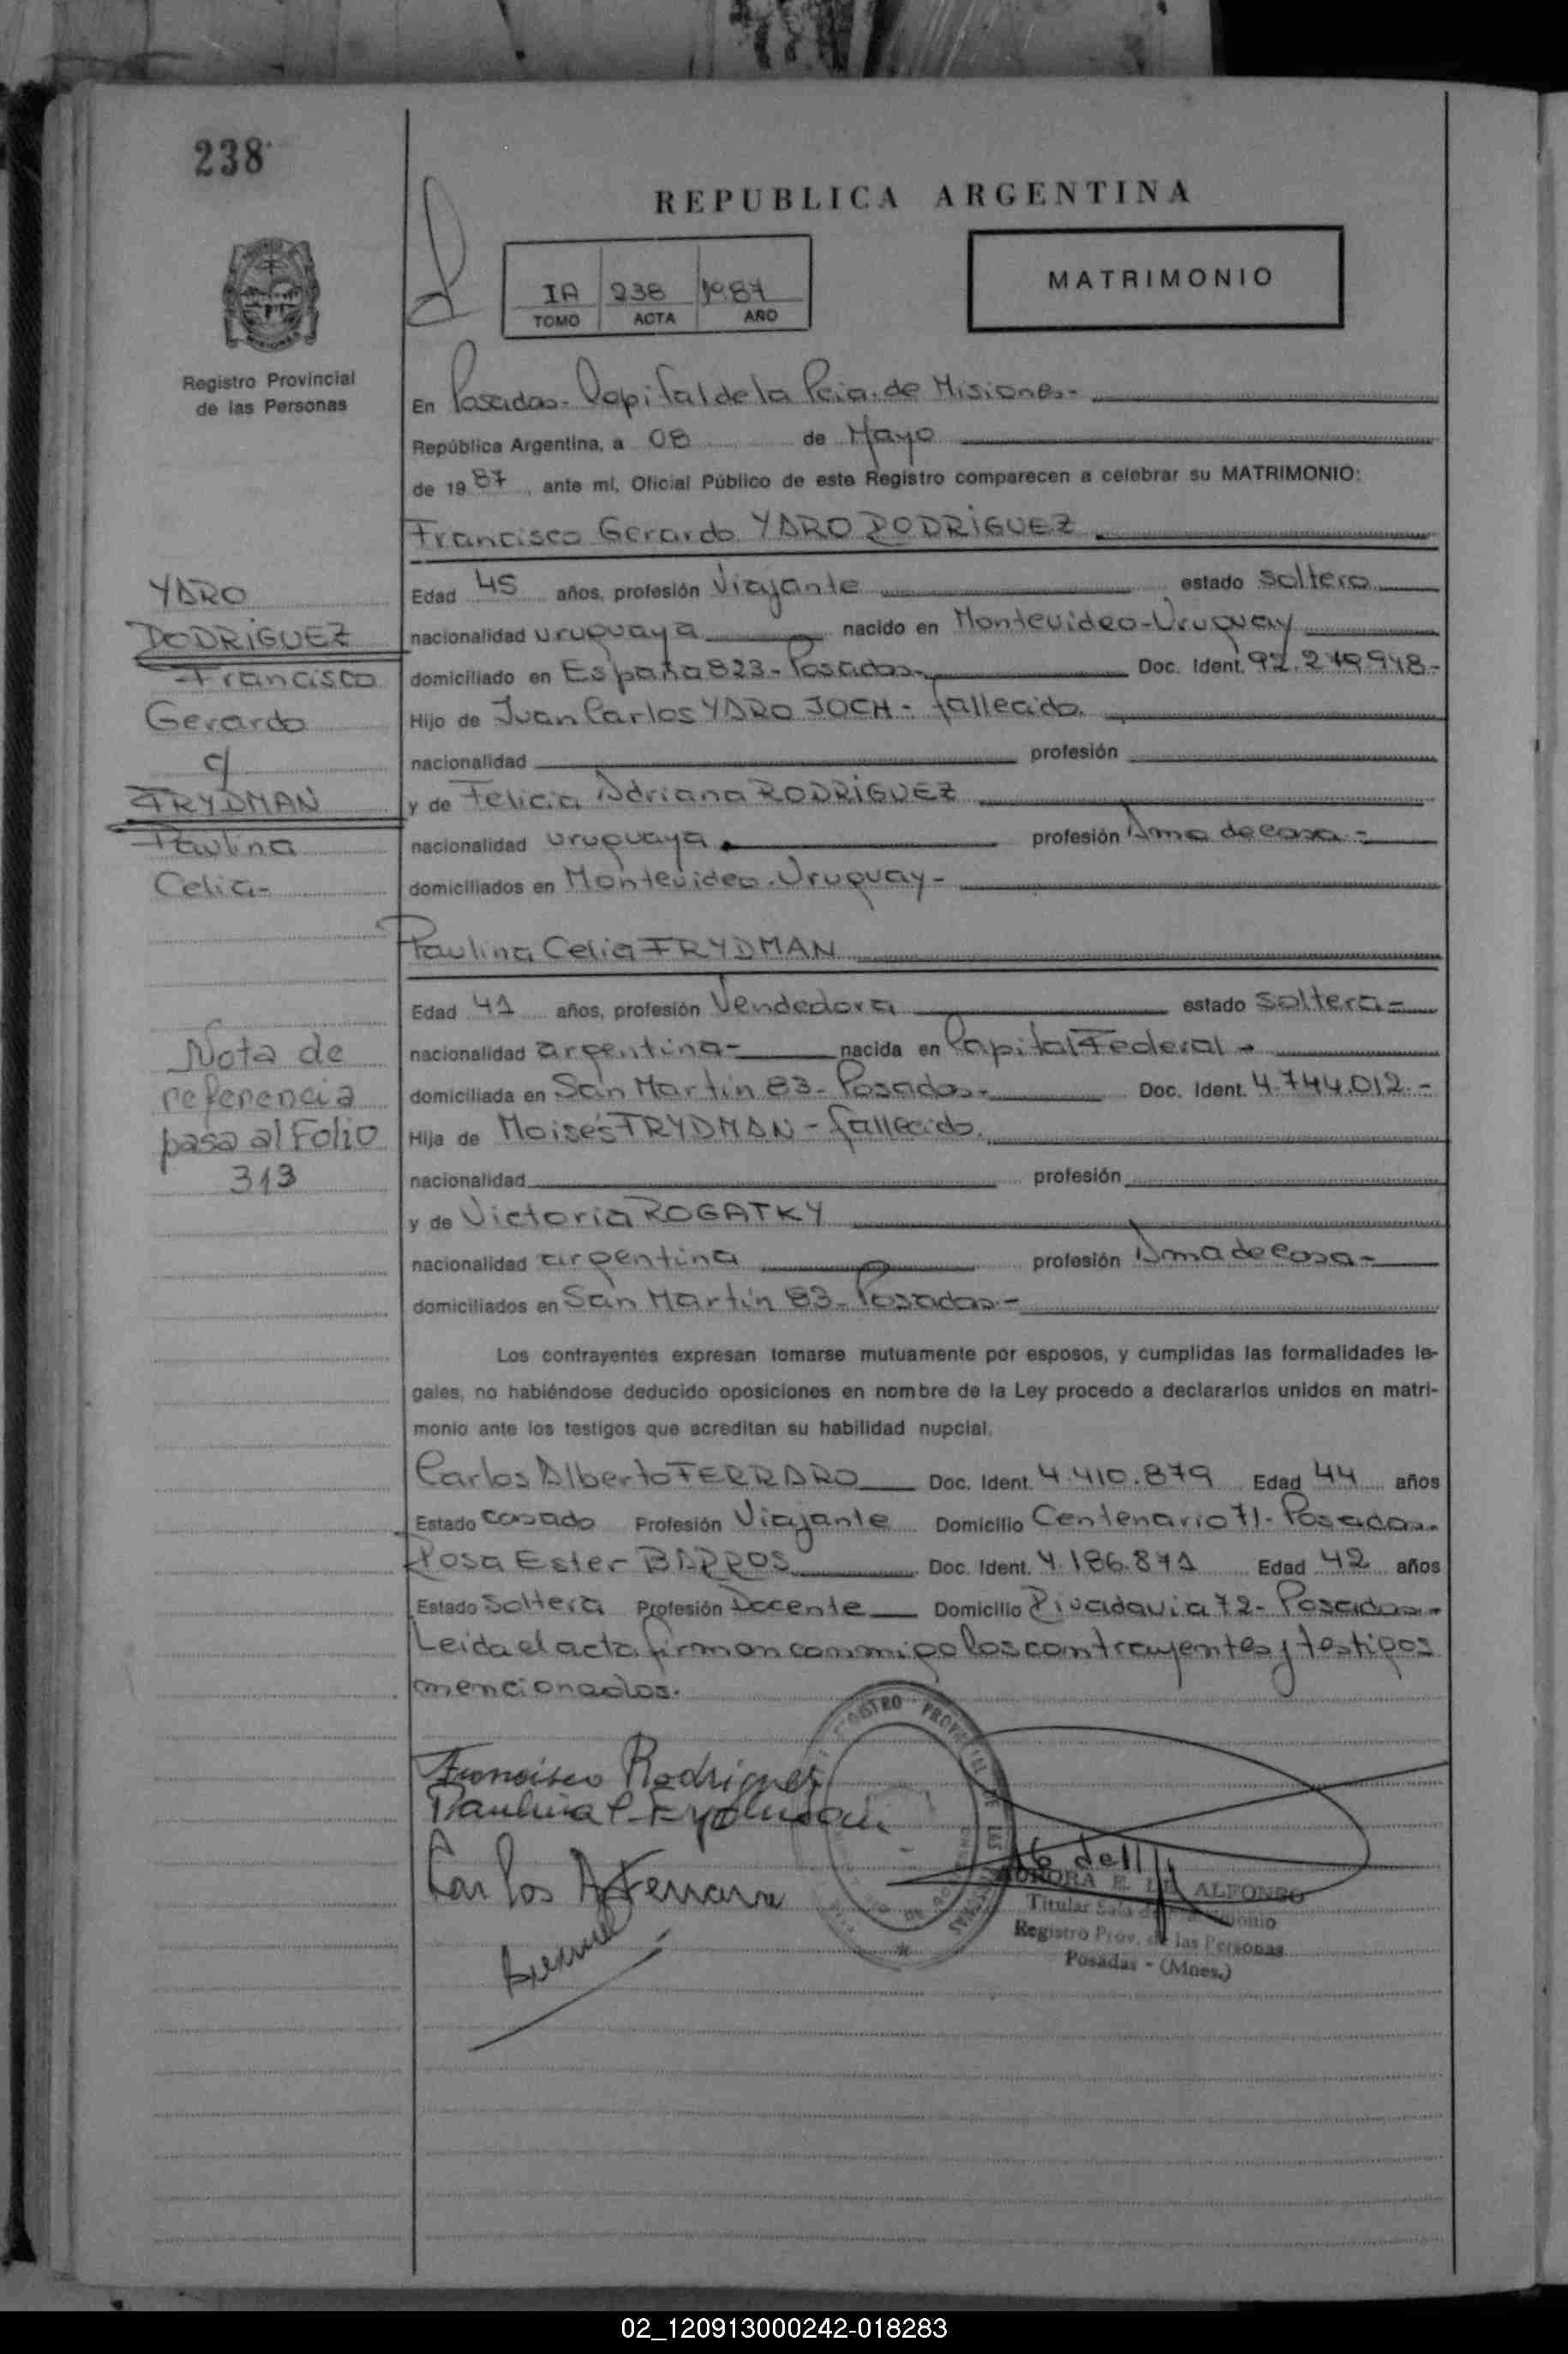 238
REPUBLICA ARGENTINA
IA 238 1987
TOMO ACTA AÑO
MATRIMONIO
Registro Provincial
de las Personas
En Posadas - Capital de la Pcia. de Misiones.-
República Argentina, a 08 de Mayo
de 1987, ante mi, Oficial Público de este Registro comparecen a celebrar su MATRIMONIO:
Francisco Gerardo YARO RODRIGUEZ
Edad 45 años, profesión Viajante estado soltero
nacionalidad uruguaya nacido en Montevideo-Uruguay
domiciliado en España 823 - Posadas.- Doc. Ident. 92.279.948.-
Hijo de Juan Carlos YARO JOCH - fallecido.
nacionalidad profesión
y de Felicia Adriana RODRIGUEZ
nacionalidad uruguaya profesión Ama de casa.-
domiciliados en Montevideo - Uruguay -
YARO
RODRIGUEZ
Francisco
Gerardo
c/
FRYDMAN
Paulina
Celia-
Paulina Celia FRYDMAN
Edad 41 años, profesión Vendedora estado soltera-
nacionalidad argentina- nacida en Capital Federal -
domiciliada en San Martín 83 - Posadas.- Doc. Ident. 4.744.012.-
Hija de Moisés FRYDMAN - fallecido.
nacionalidad profesión
y de Victoria ROGATKY
nacionalidad argentina profesión Ama de casa-
domiciliados en San Martín 83 - Posadas -
Nota de
referencia
pasa al Folio
313
Los contrayentes expresan tomarse mutuamente por esposos, y cumplidas las formalidades le-
gales, no habiéndose deducido oposiciones en nombre de la Ley procedo a declararlos unidos en matri-
monio ante los testigos que acreditan su habilidad nupcial.
Carlos Alberto FERRARO Doc. Ident. 4.410.879 Edad 44 años
Estado casado Profesión Viajante Domicilio Centenario 71 - Posadas.
Rosa Ester BARROS Doc. Ident. 4.186.871 Edad 42 años
Estado Soltera Profesión Docente Domicilio Rivadavia 72 - Posadas.-
Leida el acta firman conmigo los contrayentes y testigos
mencionados.
Francisco Rodriguez
Paulina C. Frydman
Carlos A Ferraro
REGISTRO PROVINCIAL DE LAS PERSONAS
AURORA E. DE ALFONSO
Titular Sala de Matrimonio
Registro Prov. de las Personas
Posadas - (Mnes.)
02_120913000242-018283